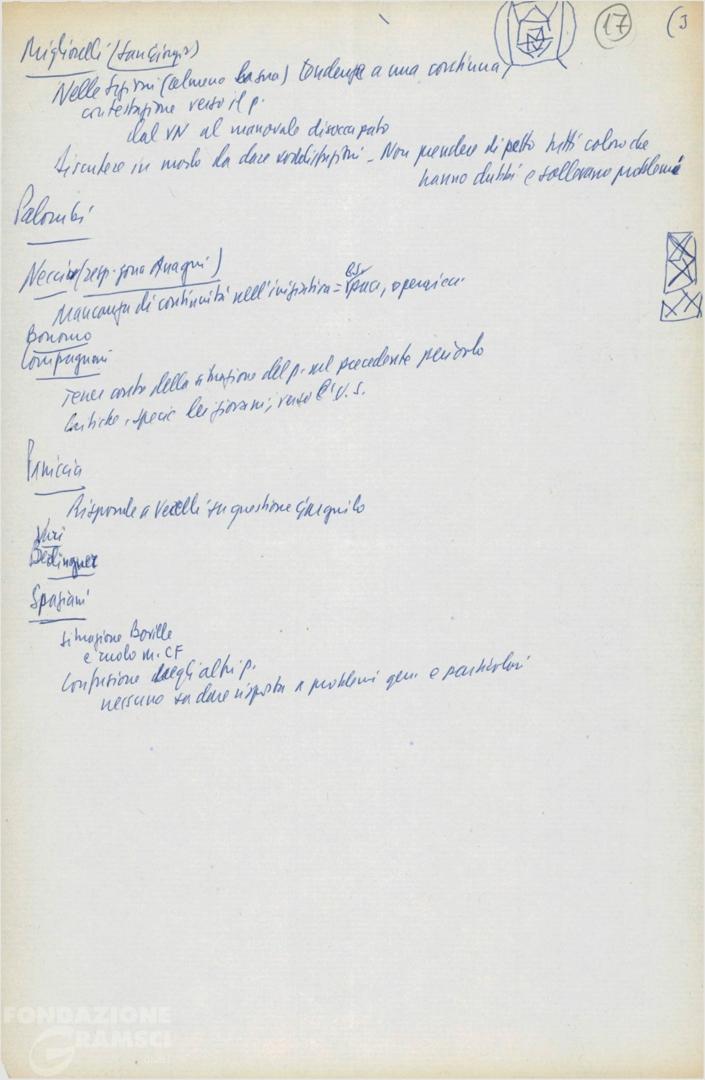 17
(3
Migliorelli (San Giorgio)
Nelle sezioni (almeno la sua) tendenze a una continua
contestazione verso il p.
dal VN al manovale disoccupato
Discutere in modo da dare soddisfazioni - Non prendere di petto tutti coloro che
hanno dubbi e sollevano problemi
Palombi
Neccia (resp. zona Anagni)
Mancanza di continuità nell'iniziativa =
Bonomo
Compagnoni
Tener conto della situazione del p. nel precedente periodo
Critiche, specie dei giovani, verso l'U.S.
Paniccia
Risponde a Vecelli su questione
Berlinguer
Spaziani
Situazione Boville
e ruolo m. CF
Confusione degli altri p.
nessuno sa dare risposta a problemi gen. e particolari
FONDAZIONE
GRAMSCI